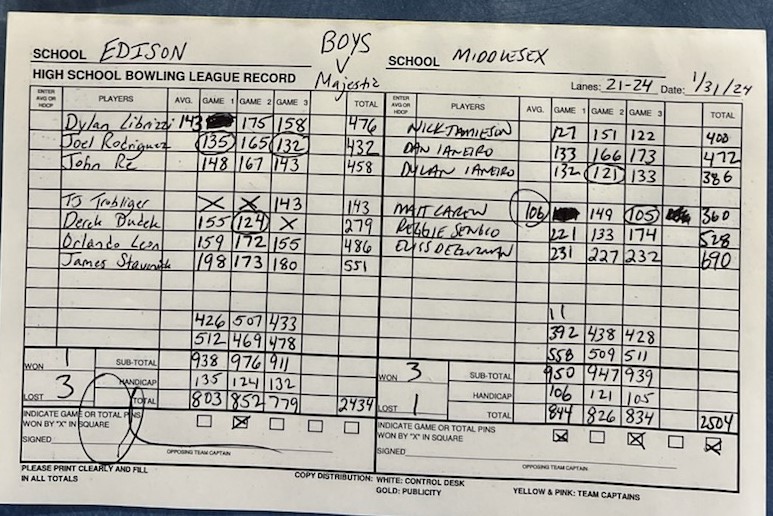 SCHOOL EDISON
BOYS
V
Majestic
SCHOOL MIDDLESEX
HIGH SCHOOL BOWLING LEAGUE RECORD
Lanes: 21-24 Date: 1/31/24
ENTER AVG OR HDCP PLAYERS AVG. GAME 1 GAME 2 GAME 3 TOTAL
Dylan Librizzi 143 175 158 476
Joel Rodriguez 135 165 132 432
John Re 148 167 143 458
TJ X X 143 143
Derek 155 124 X 279
Orlando Leon 159 172 155 486
James 198 173 180 551
426 507 433
512 469 478
WON 1 SUB-TOTAL 938 976 911
HANDICAP 135 124 132
LOST 3 TOTAL 803 852 779 2434
INDICATE GAME OR TOTAL PINS
WON BY "X" IN SQUARE X
SIGNED
OPPOSING TEAM CAPTAIN
ENTER AVG OR HDCP PLAYERS AVG. GAME 1 GAME 2 GAME 3 TOTAL
NICK JAMIESON 127 151 122 400
DAN IANEIRO 133 166 173 472
DYLAN IANEIRO 132 121 133 386
MATT 106 149 105 360
REGGIE 221 133 174 528
DEGUZMAN 231 227 232 690
11
392 438 428
558 509 511
WON 3 SUB-TOTAL 950 947 939
HANDICAP 106 121 105
LOST 1 TOTAL 844 826 834 2504
INDICATE GAME OR TOTAL PINS
WON BY "X" IN SQUARE X X X
SIGNED
OPPOSING TEAM CAPTAIN
PLEASE PRINT CLEARLY AND FILL
IN ALL TOTALS
COPY DISTRIBUTION: WHITE: CONTROL DESK
GOLD: PUBLICITY
YELLOW & PINK: TEAM CAPTAINS